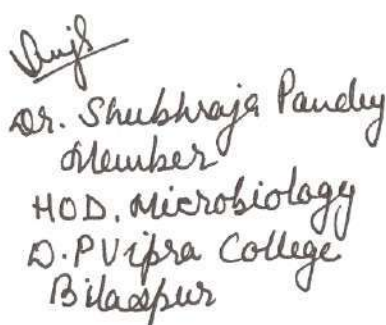 Dr. Shubhraja Pandey
Member
HOD. Microbiology
D.P Vipra College
Bilaspur